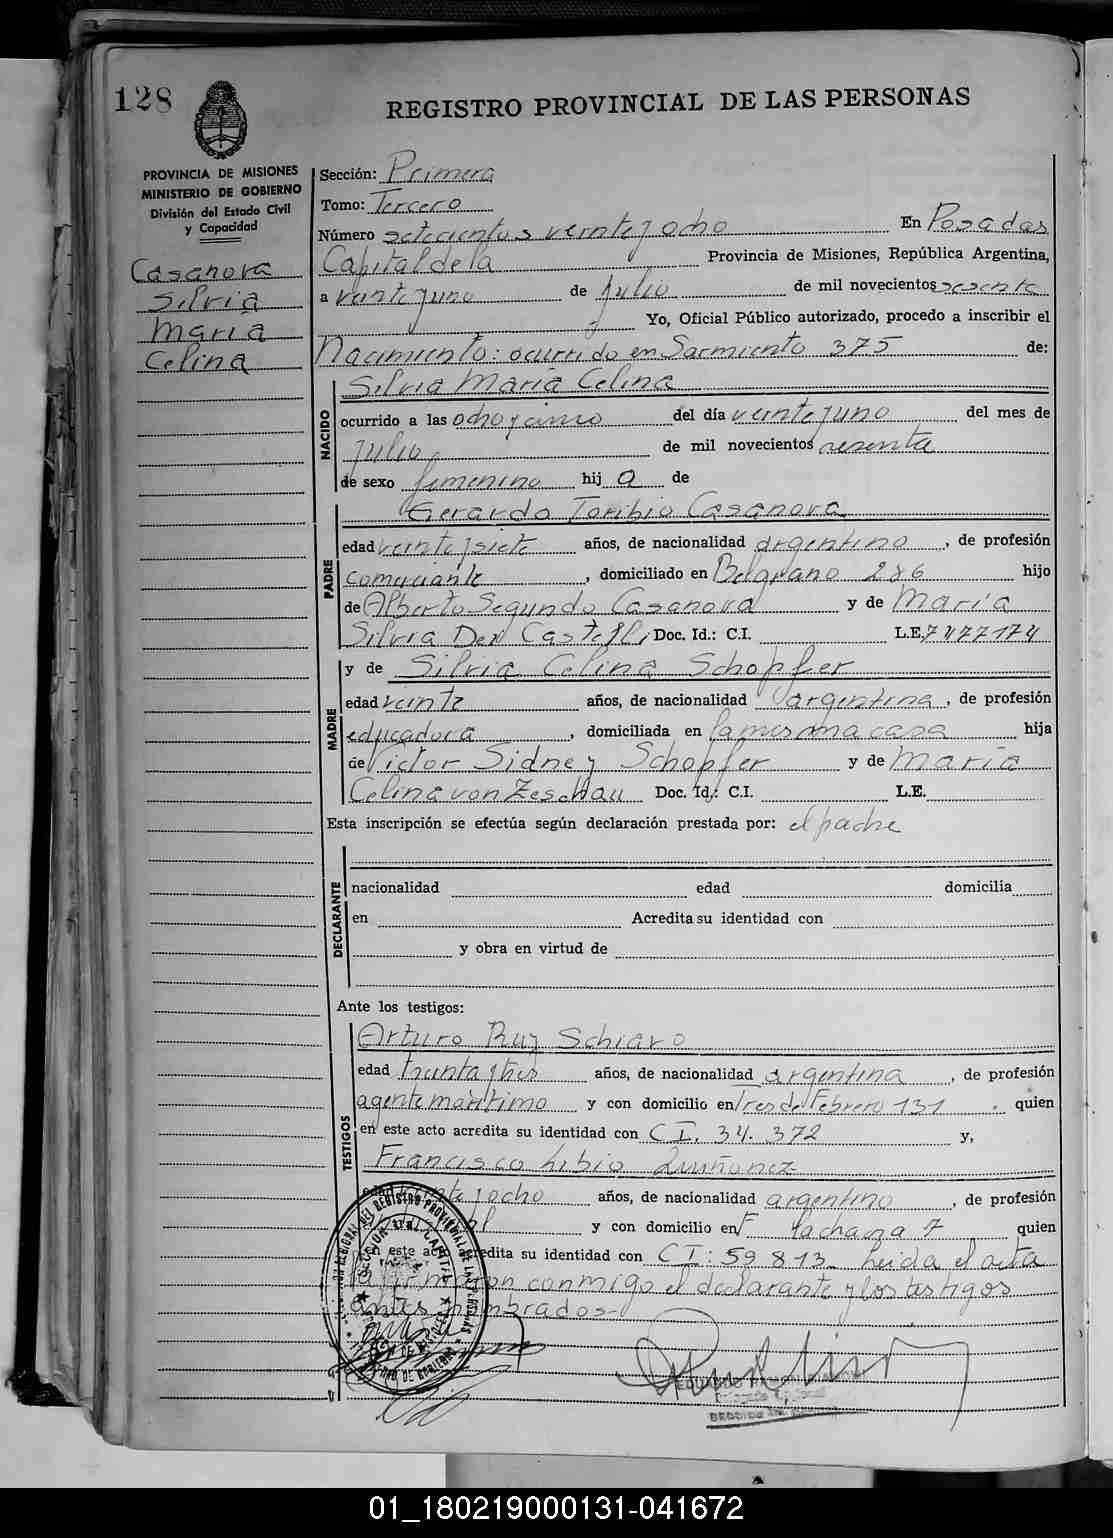 128
REGISTRO PROVINCIAL DE LAS PERSONAS
PROVINCIA DE MISIONES
MINISTERIO DE GOBIERNO
División del Estado Civil
y Capacidad
Casanova
Silvia
Maria
Celina
Sección: Primera
Tomo: Tercero
Número setecientos veinte y ocho En Posadas
Capital de la Provincia de Misiones, República Argentina,
a veinte y uno de Julio de mil novecientos sesenta
Yo, Oficial Público autorizado, procedo a inscribir el
Nacimiento: ocurrido en Sarmiento 375 de:
NACIDO
Silvia Maria Celina
ocurrido a las ocho y cinco del día veinte y uno del mes de
Julio de mil novecientos sesenta
de sexo femenino hij a de
PADRE
Gerardo Toribio Casanova
edad veinte y siete años, de nacionalidad argentino, de profesión
comerciante, domiciliado en Belgrano 286 hijo
de Alberto Segundo Casanova y de Maria
Silvia Del Castelli Doc. Id.: C.I. L.E. 7477174
y de Silvia Celina Schopfer
MADRE
edad veinte años, de nacionalidad argentina, de profesión
educadora, domiciliada en la misma casa hija
de Victor Sidney Schopfer y de Maria
Celina von Zeschau Doc. Id.: C.I. L.E.
Esta inscripción se efectúa según declaración prestada por: el padre
DECLARANTE
nacionalidad edad domicilia
en Acredita su identidad con
y obra en virtud de
Ante los testigos:
TESTIGOS
Arturo Ruy Schiavo
edad treinta y tres años, de nacionalidad argentina, de profesión
agente maritimo y con domicilio en Tres de Febrero 131 quien
en este acto acredita su identidad con C I. 34.372 y,
Francisco Libio Quiñonez
edad veinte y ocho años, de nacionalidad argentino, de profesión
y con domicilio en F. quien
en este acto acredita su identidad con C I: 59813. Leida el acta
la firmaron conmigo el declarante y los testigos
antes nombrados-
01_180219000131-041672